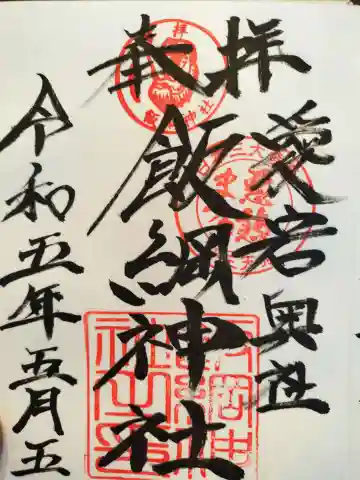 奉拝
愛宕奥社
飯綱神社
令和五年五月五